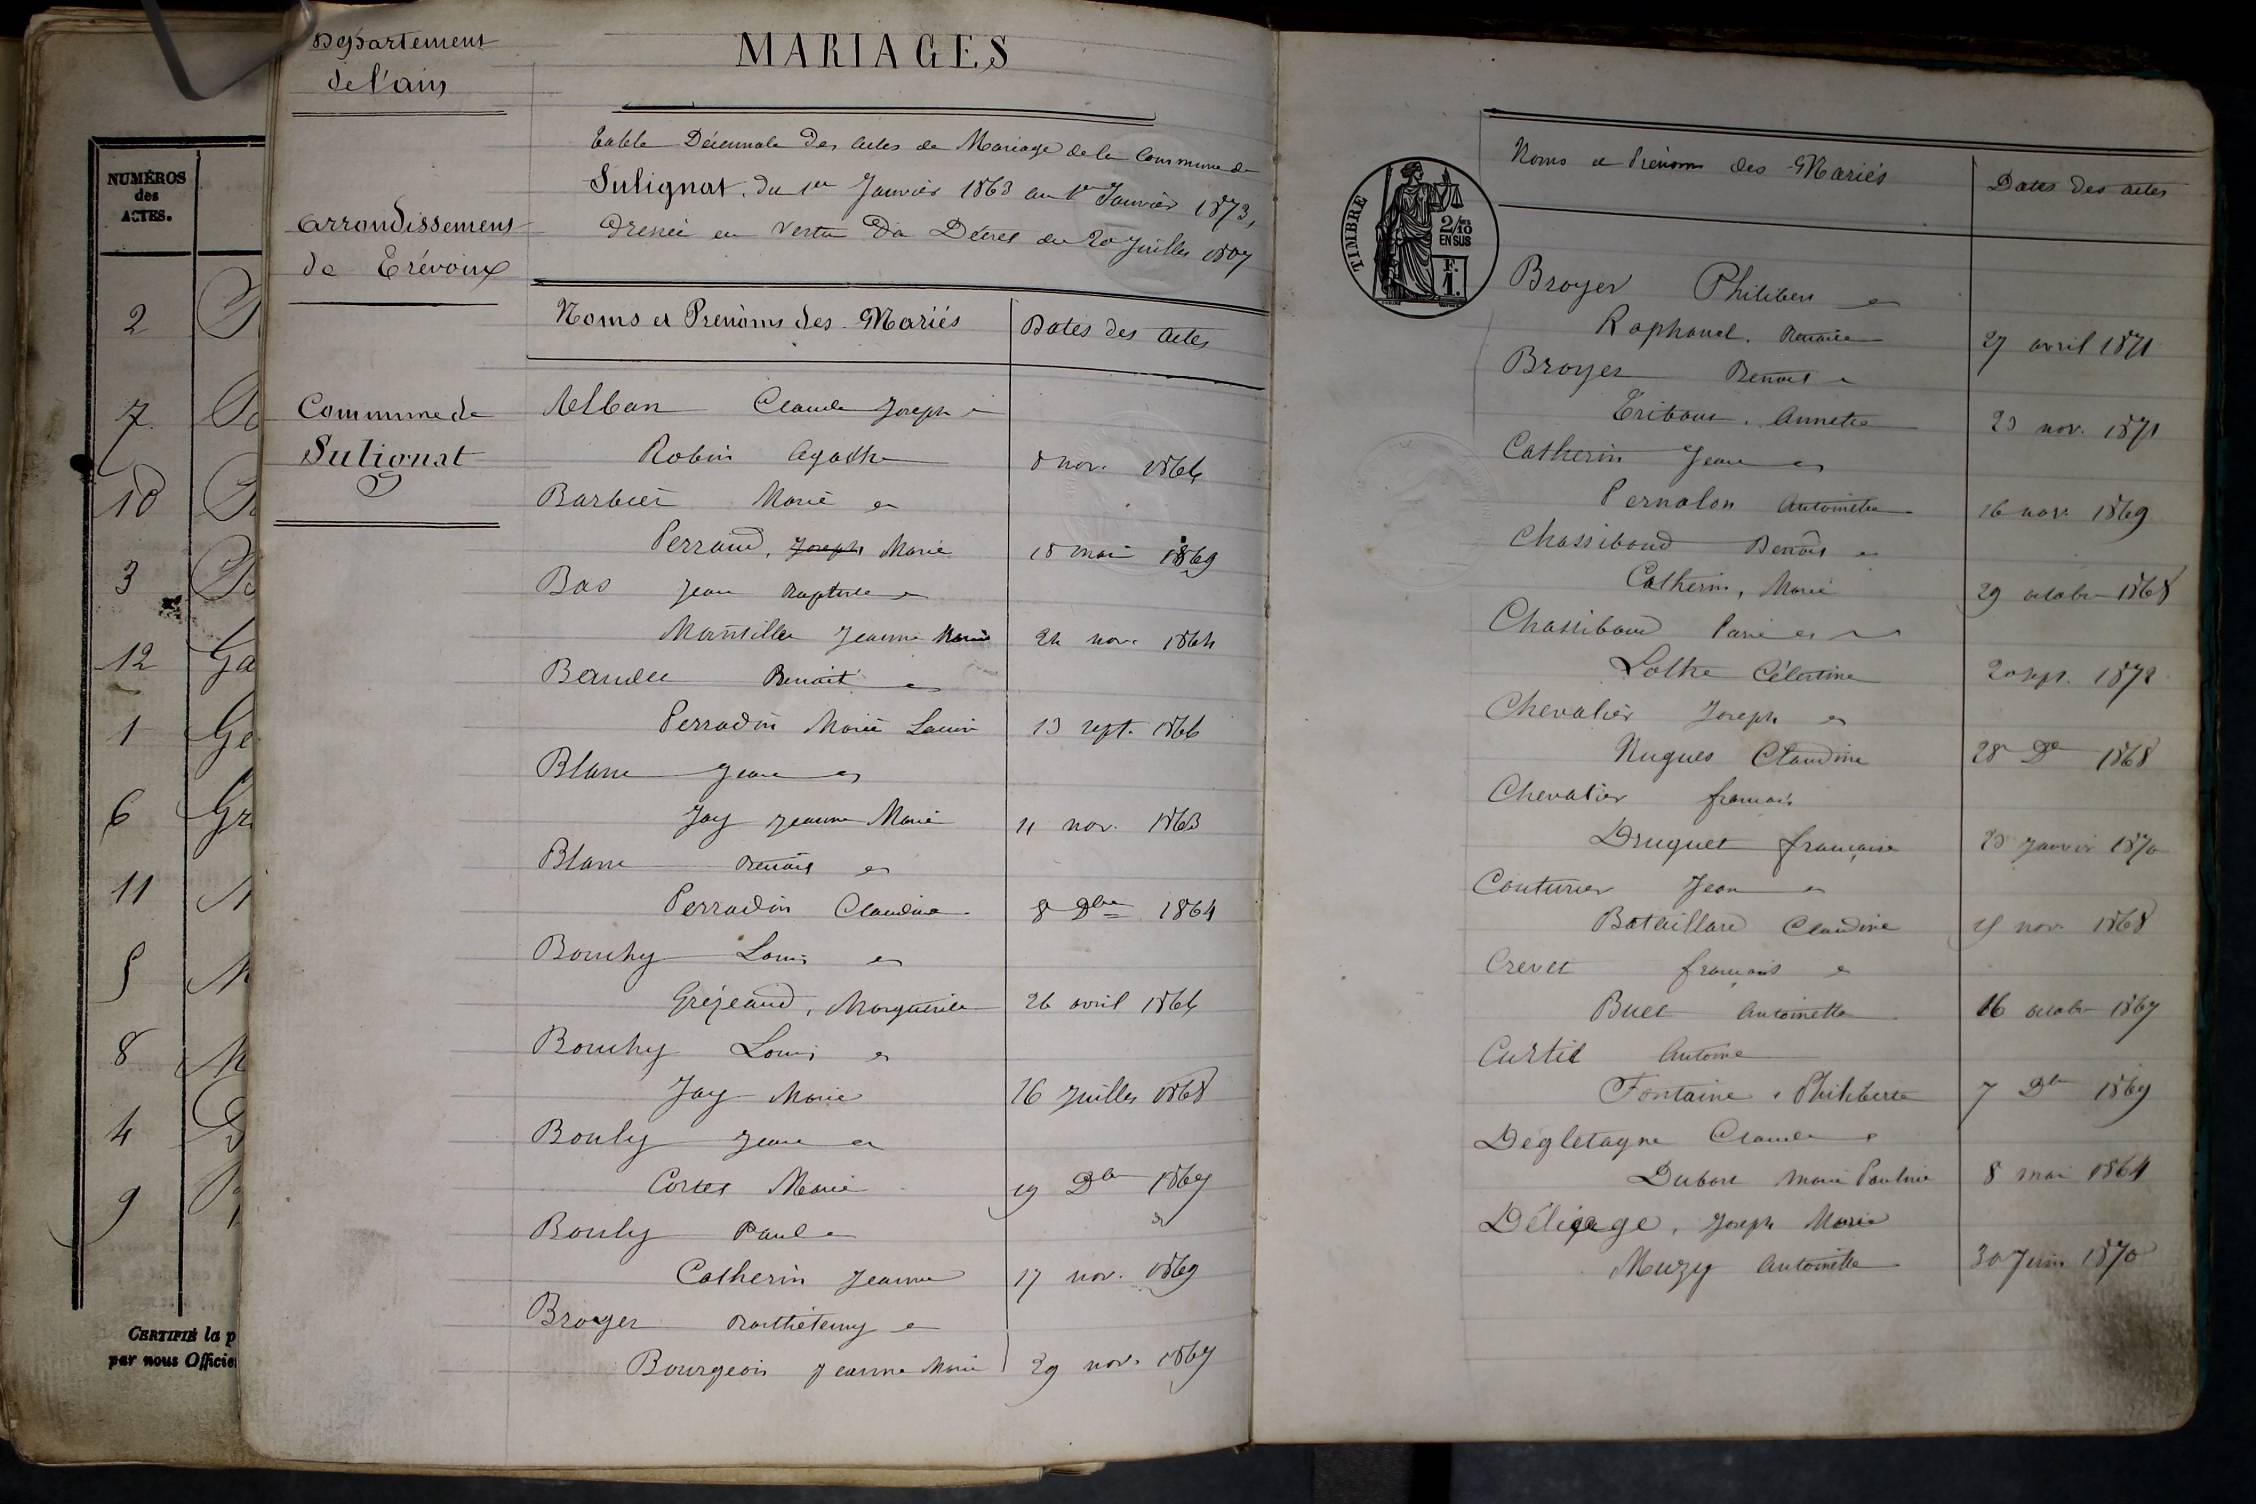 NUMÉROS
des
ACTES.
2
7
10
3
12
1
6
11
5
8
4
9
CERTIFIÉ la p
par nous Officie
Département
de l'ain
arrondissement
de Trévoux
Commune de
Sulignat
MARIAGES
Table Décennale des actes de Mariage de la Commune de
Sulignat, du 1er Janvier 1863 au 1er Janvier 1873,
dressée en vertu du Décret du 20 Juillet 1807
Noms et Prénoms des Mariés Dates des actes
Alban Claude Joseph et
Robin Agathe 8 nov. 1866
Barbier Marie et
Perraud, Joseph Marie 18 mai 1869
Bas Jean Baptiste et
Mantillier Jeanne Marie 24 nov. 1864
Benoit et
Perradin Marie Louise 13 sept. 1866
Blanc Jean et
Jay Jeanne Marie 11 nov. 1863
Blanc Benoit et
Perradin Claudine 8 Dbre 1864
Bouchy Louis et
Gréjeaud, Marguerite 26 avril 1866
Bouchy Louis et
Jay Marie 16 Juillet 1868
Bouly Jean et
Cortet Marie 19 Dbre 1867
Bouly Paul et
Catherin Jeanne 17 nov. 1869
Broyer Barthélemy et
Bourgeois Jeanne Marie 29 nov. 1867
TIMBRE
2/10
EN SUS
F.
1.
Noms et Prénoms des Mariés Dates des actes
Broyer Philibert et
Raphanel, Benoite 27 avril 1871
Broyer Benoit et
Tribout, Annette 23 nov. 1871
Catherin Jean et
Pernolon Antoinette 16 nov. 1869
Chassiboud Benoit et
Catherin, Marie 29 octobre 1868
Chassiboud et
Lothe Célestine 20 sept. 1872
Chevalier Joseph et
Nugues Claudine 28 Dbre 1868
Chevalier françois
Druguet françoise 20 janvier 1870
Couturier Jean et
Bataillard Claudine nov. 1868
Crevet françois et
Buet Antoinette 16 octobre 1867
Curtil Antoine
Fontaine, Philiberte 7 Dbre 1869
Dégletagne Claude et
Dubost Marie Pauline 8 mai 1864
Déliage, Joseph Marie
Muzy Antoinette 30 Juin 1870